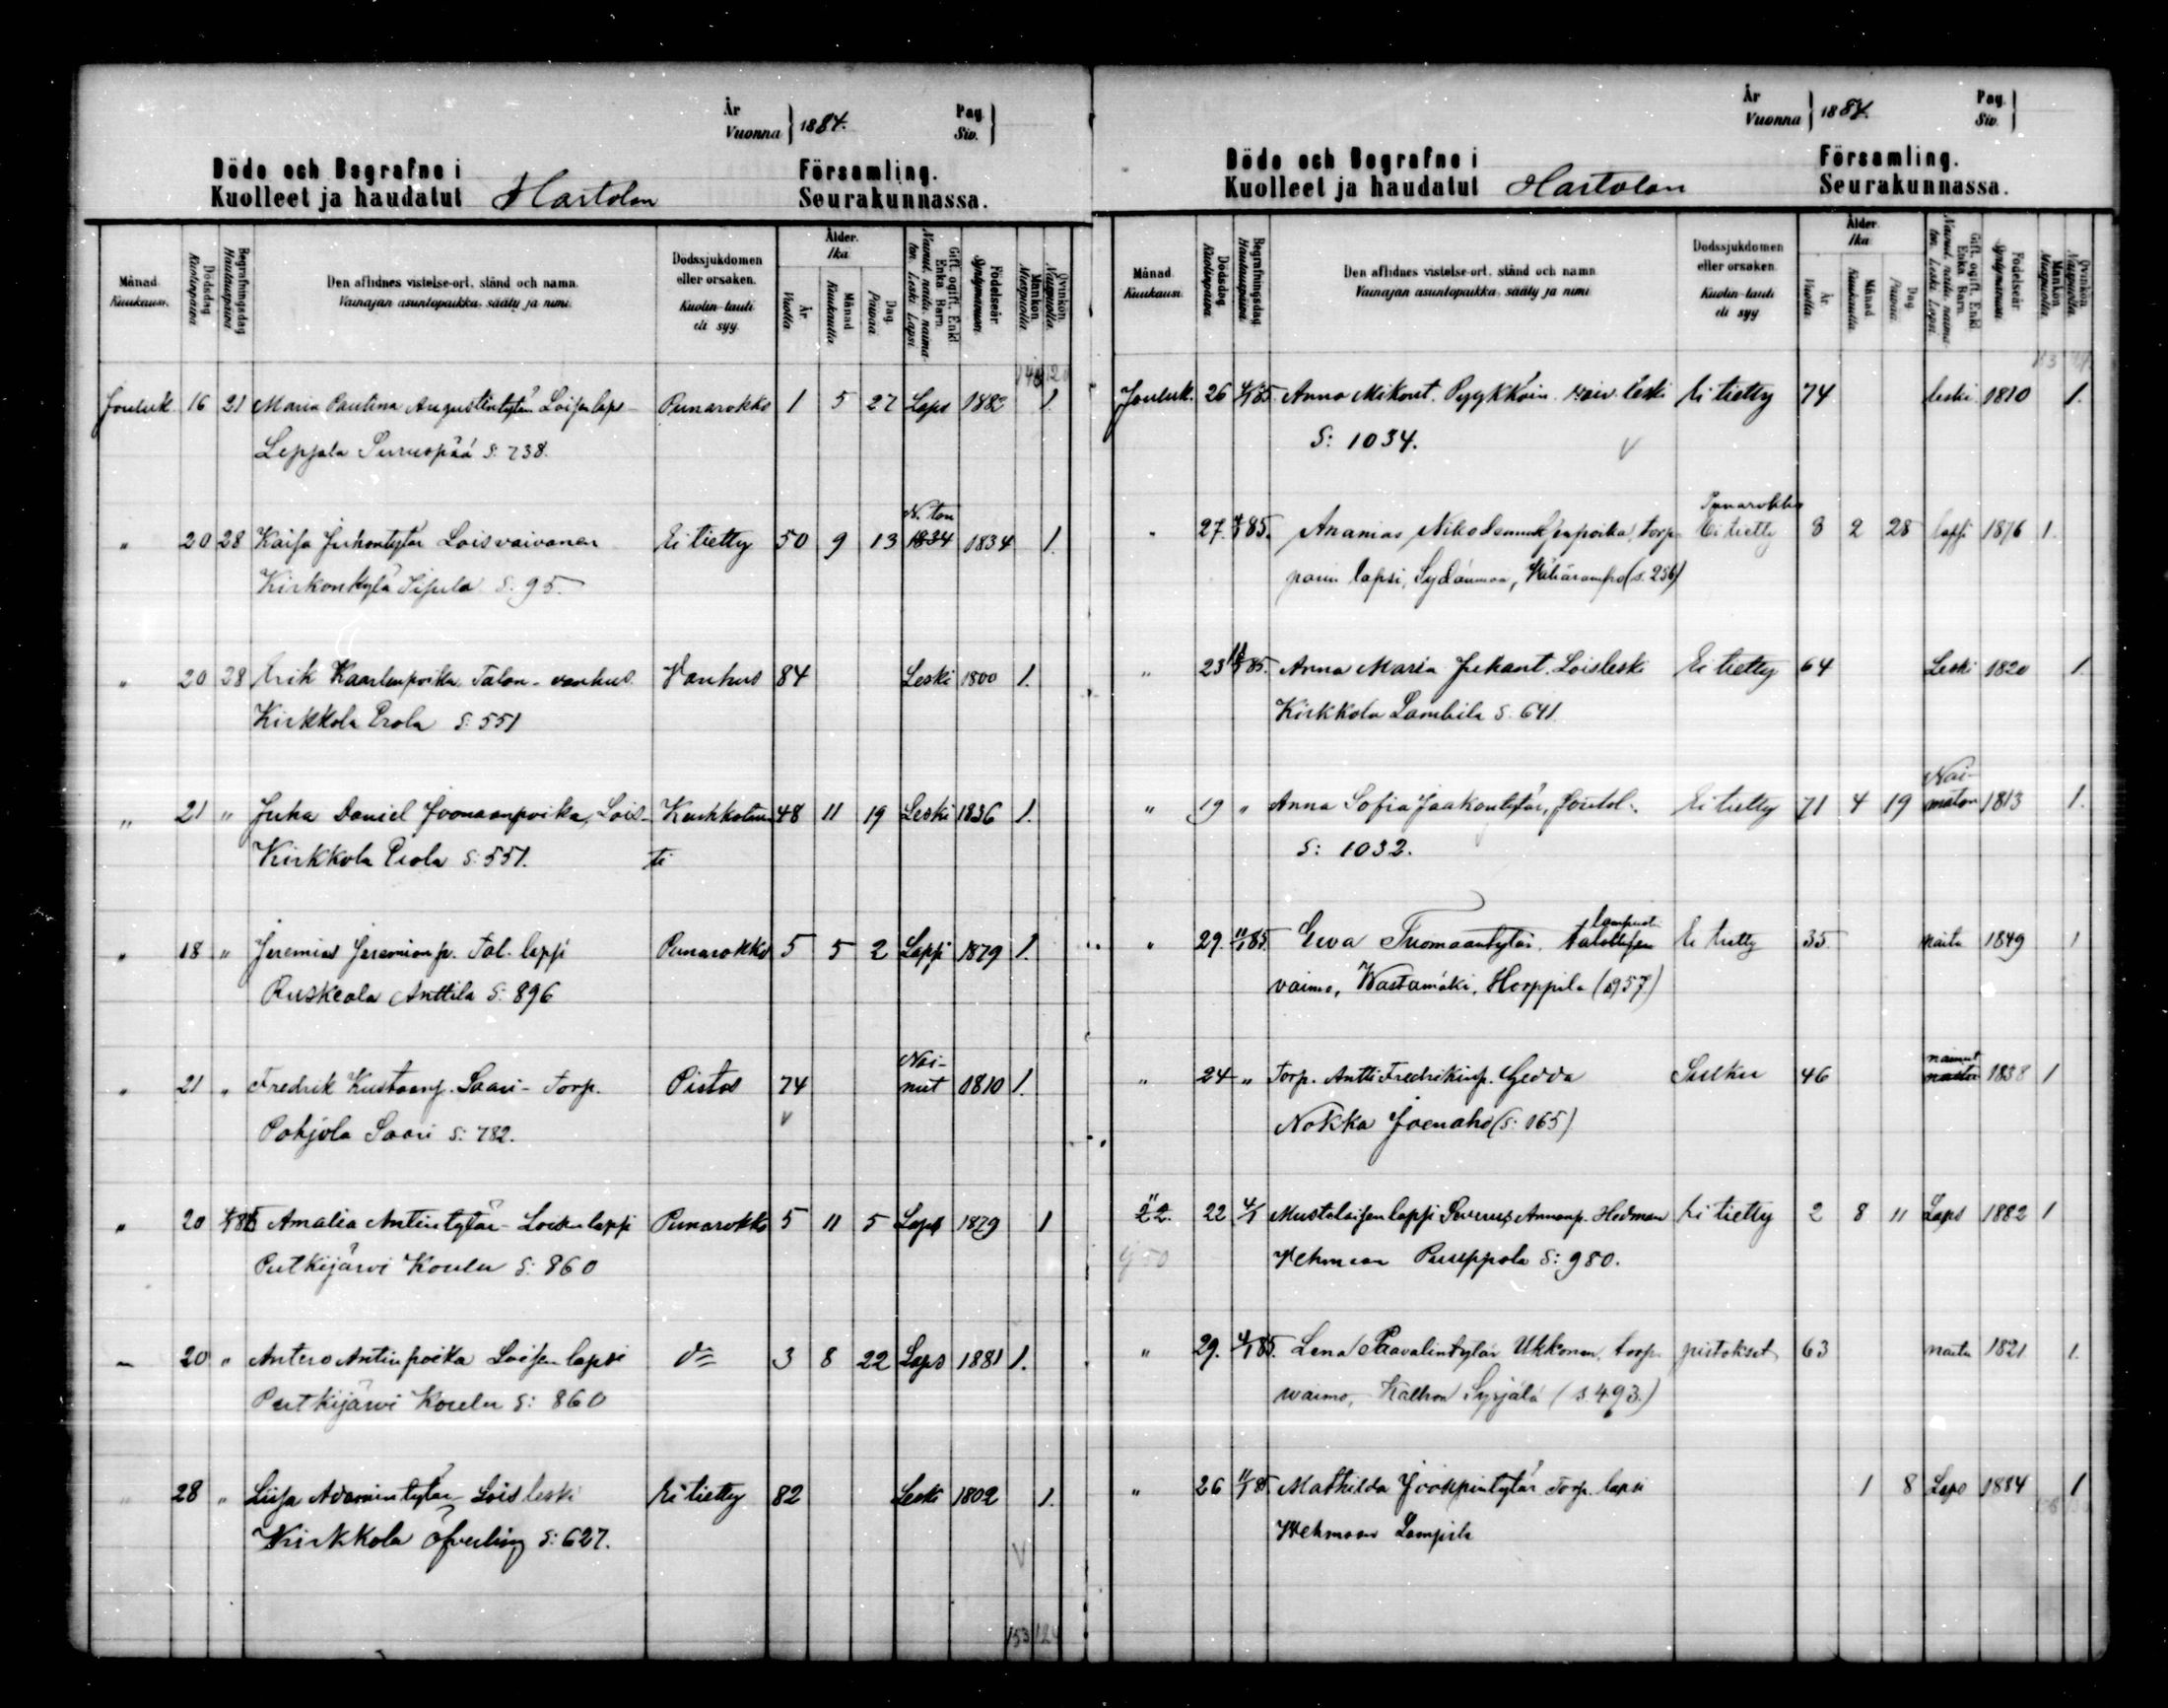 År
Vuonna } 1884.
Pag.
Siv. }
Döde och Begrafne i
Kuolleet ja haudatut Hartolan
Församling.
Seurakunnassa.
Månad. Kuukausi.
Dödsdag Kuolinpäivä
Begrafningsdag Hautauspäivä
Den aflidnes vistelse-ort, stånd och namn.
Vainajan asuntopaikka, sääty ja nimi.
Dödssjukdomen eller orsaken.
Kuolin-tauti eli syy.
Ålder. Ikä
År Vuotta
Månad Kuukautta
Dag Päivää
Gift, ogift, Enkl. Enka Barn.
Nainut, naitu, naimaton, Leski Lapsi
Födelseår Syntymävuosi.
Mankön. Miespuolia.
Qvinkön. Naispuolia.
Jouluk 16 21 Maria Paulina Augustintytär Loisen laps Punarokko 1 5 27 Laps 1882 1.
Leppala Suruspää S: 738.
" 20 28 Kaisa Juhontytär Loisvaivanen Ei tietty 50 9 13 N. ton 1834 1834 1.
Kirkonkylä Sipila S. 95.
" 20 28 Erik Kaarlenpoika Talon-vanhus. Vanhus 84 Leski 1800 1.
Kirkkola Erola S: 551
" 21 " Juha Daniel Joonaanpoika, Lois- Keuhkotau 48 11 19 Leski 1836 1.
Kirkkola Erola S: 551. ti
" 18 " Jeremias Jeremianp. Tal. lapsi Punarokko 5 5 2 Lapsi 1879 1.
Ruskeala Anttila S: 896
" 21 " Fredrik Kustaanp. Saari- Torp. Pistos 74 Nai-
nut 1810 1.
Pohjola Saari S: 782.
" 20 4/1 85 Amalia Antintytär- Loisen lapsi Punarokko 5 11 5 Laps 1879 1
Putkijärvi Koulu S: 860
" 20 " Antero Antinpoika Loisen lapsi do 3 8 22 Laps 1881 1.
Putkijärvi Koulu S: 860
" 28 " Liisa Adamintytär- Lois leski Ei tietty 82 Leski 1802 1.
Kirkkola Öfverling S: 627.
153 124
År
Vuonna } 1884.
Pag.
Siv. }
Döde och Begrafne i
Kuolleet ja haudatut Hartolan
Församling.
Seurakunnassa.
Månad. Kuukausi.
Dödsdag Kuolinpäivä
Begrafningsdag Hautauspäivä
Den aflidnes vistelse-ort, stånd och namn.
Vainajan asuntopaikka, sääty ja nimi.
Dödssjukdomen eller orsaken.
Kuolin-tauti eli syy
Ålder. Ikä
År. Vuotta
Månad Kuukautta
Dag Päivää
Gift, ogift, Enkl. Enka Barn.
Nainut, naitu, naimaton, Leski Lapsi
Födelseår Syntymävuosi
Mankön. Miespuolia.
Qvinkön. Naispuolia.
Jouluk. 26 4/1 85. Anna Mikont. Pyykköin. leski Ei tietty 74 leski 1810 1.
S: 1034.
Punarokko
" 27. 85. Ananias Nikodemuksenpoika, torp- Ei tietty 8 2 28 lapsi 1876 1.
parin lapsi, Sydänmaa, (s. 256)
" 23 85. Anna Maria Juhant. Loisleski Ei tietty 64 Leski 1820 1.
Kirkkola Lambila S. 641.
Nai-
" 19 " Anna Sofia Jaakontytär, Ei tietty 71 4 19 maton 1813 1.
S: 1032.
" 29. 11/1 85. Eewa Tuomaantytär. Ei tietty 35 naitu 1849 1
vaimo, Wastamäki, Horppila (s 957.)
nainut
" 24 " Torp. Antti Fredrikinp. Gedda 46 1838 1
Nokka Joenaho (S: 165)
" 22. 22 4/1 Mustalaisen lapsi Severus Annanp. Hedman Ei tietty 2 8 11 Laps 1882 1
Wehmaa Puseppola S: 980.
" 29. 4/1 85. Lena Paavalintytär Ukkonen, torp. pistokset 63 naitu 1821 1.
waimo, Kalhon Syrjälä (s. 493.)
" 26 11/1 85. Mathilda Jookpintytär Torp. lapsi 1 8 Laps 1884 1
Wehmaan Lampila